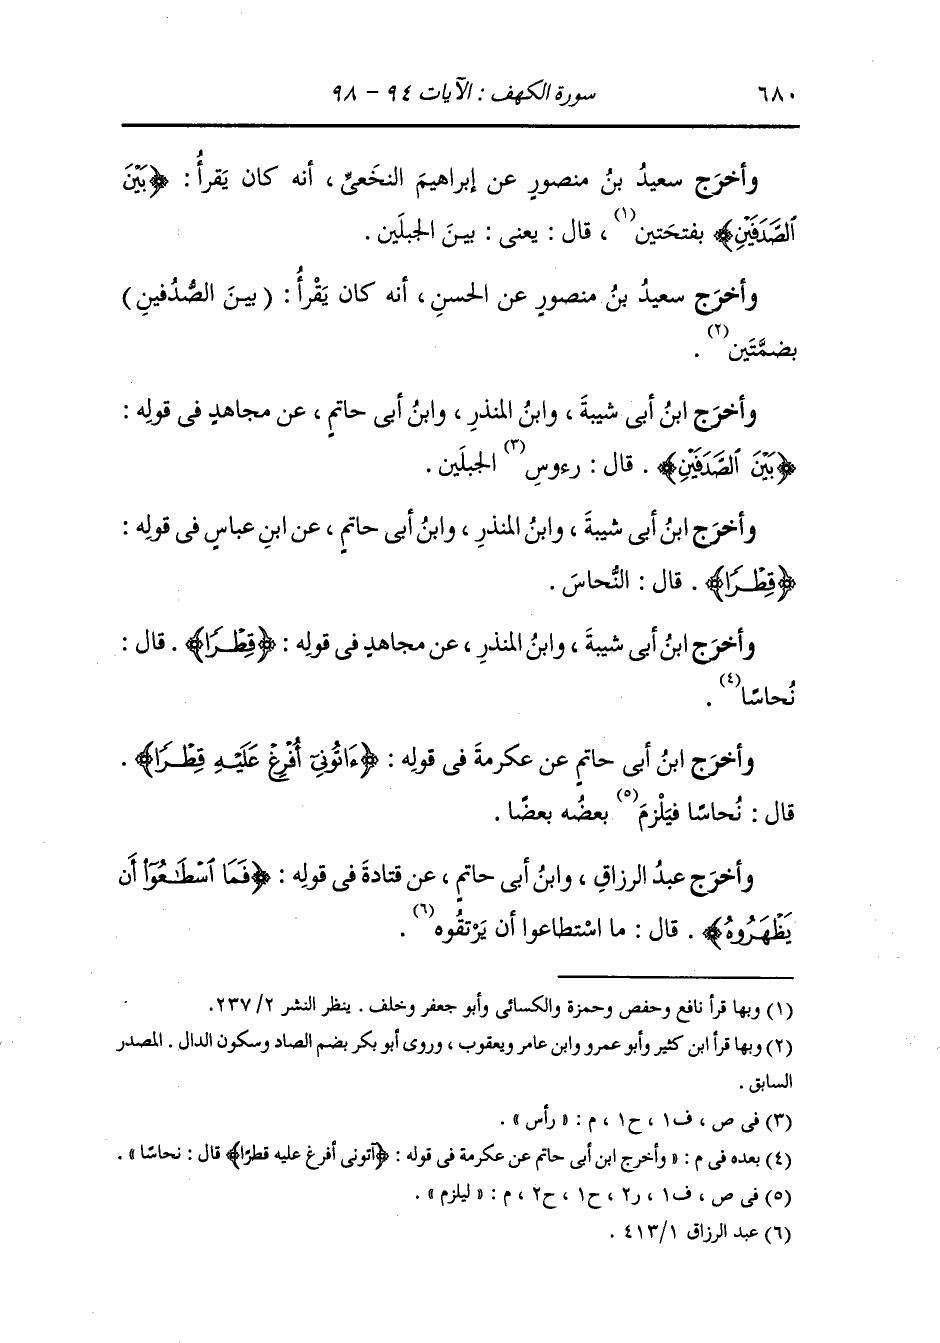 ٦٨٠ سورة الكهف : الآيات ٩٤ - ٩٨
وأخرَج سعيدُ بنُ منصورٍ عن إبراهيمَ النخَعىِّ ، أنه كان يَقرأُ : ﴿بَيْنَ
ٱلصَّدَفَيْنِ﴾ بفتحَتين(١) ، قال : يعنى : بينَ الجبلَين .
وأخرَج سعيدُ بنُ منصورٍ عن الحسنِ ، أنه كان يَقْرأُ : ( بينَ الصُّدُفينِ )
بضمَّتَين(٢) .
وأخرَج ابنُ أبى شيبةَ ، وابنُ المنذرِ ، وابنُ أبى حاتمٍ ، عن مجاهدٍ فى قولِه :
﴿بَيْنَ ٱلصَّدَفَيْنِ﴾ . قال : رءوسِ(٣) الجبلَين .
وأخرَج ابنُ أبى شيبةَ ، وابنُ المنذرِ ، وابنُ أبى حاتمٍ ، عن ابنِ عباسٍ فى قولِه :
﴿قِطْرًا﴾ . قال : النُّحاسَ .
وأخرَج ابنُ أبى شيبةَ ، وابنُ المنذرِ ، عن مجاهدٍ فى قولِه : ﴿قِطْرًا﴾ . قال :
نُحاسًا(٤) .
وأخرَج ابنُ أبى حاتمٍ عن عكرمةَ فى قولِه : ﴿ءَاتُونِىٓ أُفْرِغْ عَلَيْهِ قِطْرًا﴾ .
قال : نُحاسًا فيَلْزمَ(٥) بعضُه بعضًا .
وأخرَج عبدُ الرزاقِ ، وابنُ أبى حاتمٍ ، عن قتادةَ فى قولِه : ﴿فَمَا ٱسْطَٰعُوٓا۟ أَن
يَظْهَرُوهُ﴾ . قال : ما اسْتطاعوا أن يَرْتقُوه(٦) .
(١) وبها قرأ نافع وحفص وحمزة والكسائى وأبو جعفر وخلف . ينظر النشر ٢/ ٢٣٧.
(٢) وبها قرأ ابن كثير وأبو عمرو وابن عامر ويعقوب ، وروى أبو بكر بضم الصاد وسكون الدال . المصدر
السابق .
(٣) فى ص ، ف١ ، ح١ ، م : « رأس » .
(٤) بعده فى م : « وأخرج ابن أبى حاتم عن عكرمة فى قوله : ﴿آتونى أفرغ عليه قطرًا﴾ قال : نحاسًا » .
(٥) فى ص ، ف١ ، ر٢ ، ح١ ، ح٢ ، م : « ليلزم » .
(٦) عبد الرزاق ١/ ٤١٣ .